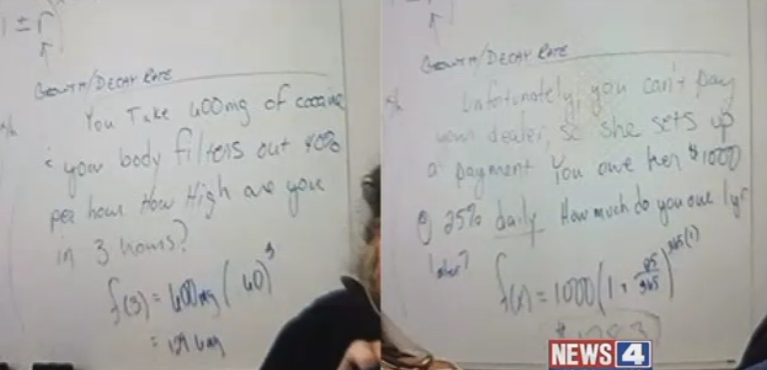 1 ± r
GROWTH/DECAY RATE
You Take 600mg of cocaine
your body filters out 40%
per hour How High are you
in 3 hours?
f(3) = 600mg ( 60)³
GROWTH/DECAY RATE
Unfortunately, you can't pay
your dealer, so she sets up
a payment You owe her $1000
@ 25% daily How much do you owe 1yr
later?
= 1000(1 +
365
365(1)
NEWS 4